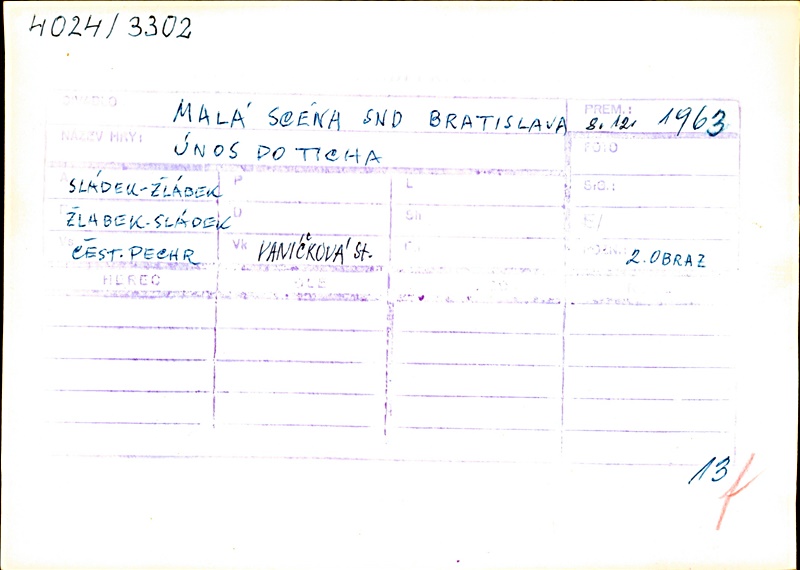 4024/3302
DIVADLO MALÁ SCÉNA SND BRATISLAVA PREM.: 8. 12. 1963
NÁZEV HRY: ÚNOS DO TICHA FOTO
SLÁDEK-ŽLÁBEK P L SIG.:
ŽLABEK-SLÁDEK D Sh E/
ČEST. PECHR Vk VANÍČKOVÁ St. 2. OBRAZ
HEREC
13